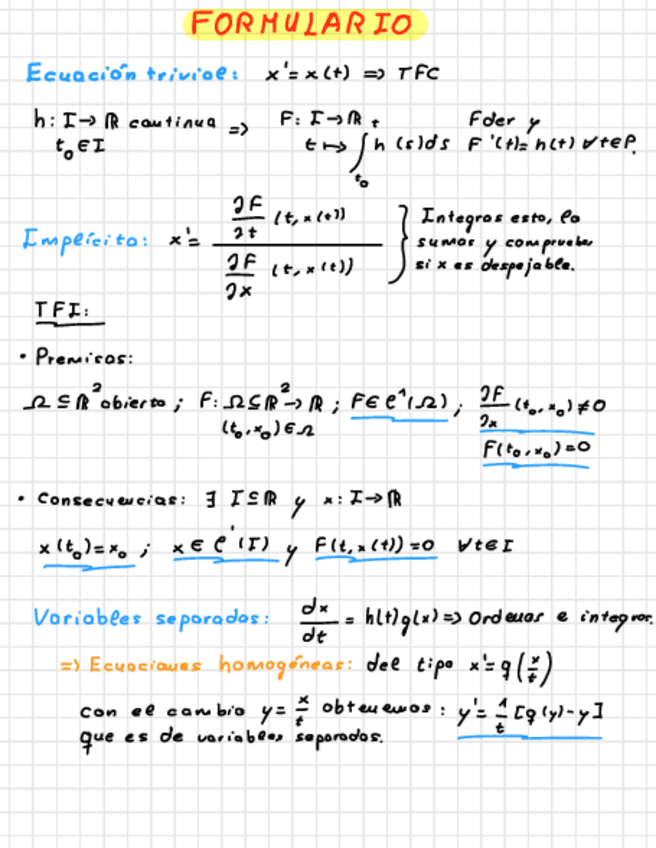 FORMULARIO
Ecuación trivial: x'= x(t) => TFC
h: I→ℝ continua => F: I→ℝ F der y
t₀∈I t ↦ ∫_{t₀}^{t} h(s)ds F'(t)= h(t) ∀t∈
Implícita: x'= ∂F/∂t (t, x(t)) / ∂F/∂x (t, x(t)) } Integras esto, lo
sumas y compruebas
si x es despejable.
TFI:
• Premisas:
Ω ⊆ ℝ² abierto ; F: Ω⊆ℝ²→ℝ ; F∈ C¹(Ω) ; ∂F/∂x (t₀, x₀) ≠ 0
(t₀, x₀) ∈ Ω F(t₀, x₀) = 0
• Consecuencias: ∃ I⊆ℝ y x: I→ℝ
x(t₀)= x₀ ; x ∈ C'(I) y F(t, x(t)) = 0 ∀t∈I
Variables separadas: dx/dt = h(t)g(x) => Ordenas e integras.
=> Ecuaciones homogéneas: del tipo x'= g(x/t)
con el cambio y= x/t obtenemos: y'= 1/t [g(y)-y]
que es de variables separadas.